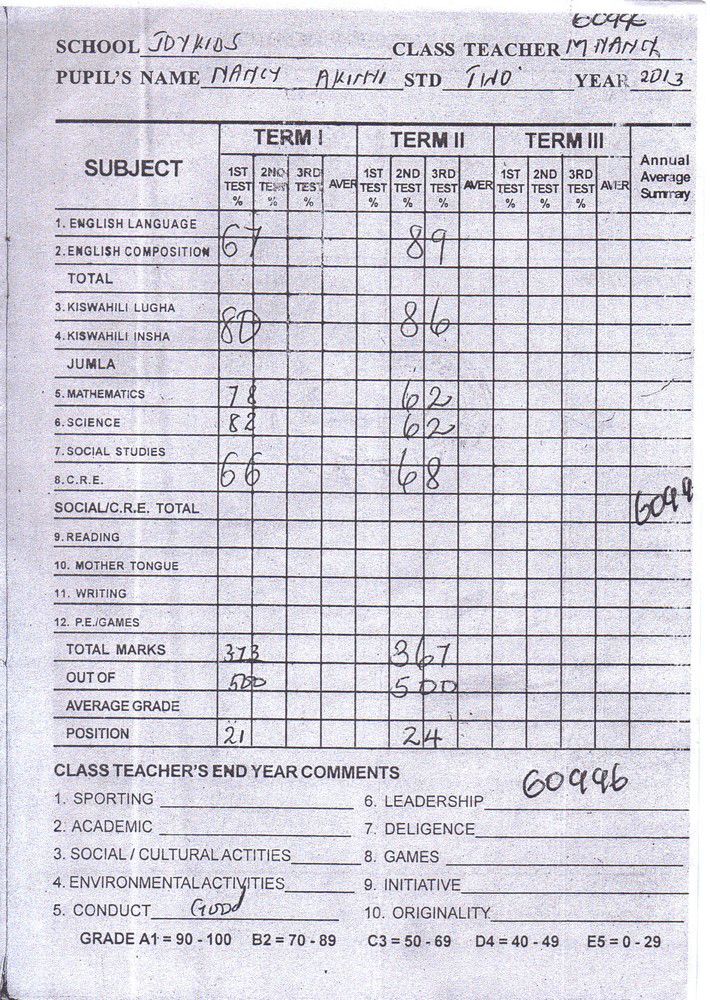 SCHOOL JOYKIDS CLASS TEACHER M NANCY
PUPIL'S NAME NANCY AKINYI STD TWO YEAR 2013
SUBJECT TERM I TERM II TERM III Annual Average Summary
1ST TEST % 2ND TEST % 3RD TEST % AVER 1ST TEST % 2ND TEST % 3RD TEST % AVER 1ST TEST % 2ND TEST % 3RD TEST % AVER
1. ENGLISH LANGUAGE
2. ENGLISH COMPOSITION 67 89
TOTAL
3. KISWAHILI LUGHA
4. KISWAHILI INSHA 80 86
JUMLA
5. MATHEMATICS 78 62
6. SCIENCE 82 62
7. SOCIAL STUDIES
8. C.R.E. 66 68
SOCIAL/C.R.E. TOTAL
9. READING
10. MOTHER TONGUE
11. WRITING
12. P.E./GAMES
TOTAL MARKS 373 367
OUT OF 500 500
AVERAGE GRADE
POSITION 21 24
CLASS TEACHER'S END YEAR COMMENTS 60996
1. SPORTING 6. LEADERSHIP
2. ACADEMIC 7. DELIGENCE
3. SOCIAL / CULTURAL ACTITIES 8. GAMES
4. ENVIRONMENTAL ACTIVITIES 9. INITIATIVE
5. CONDUCT Good 10. ORIGINALITY
GRADE A1 = 90 - 100 B2 = 70 - 89 C3 = 50 - 69 D4 = 40 - 49 E5 = 0 - 29